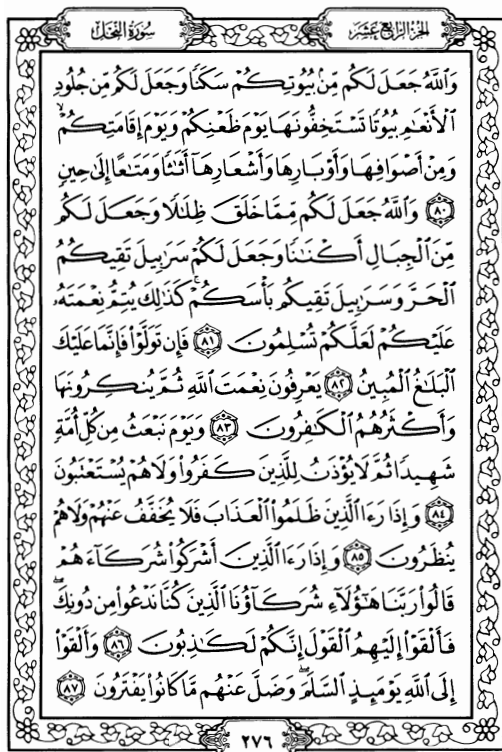 الجزء الرابع عشر
سورة النحل
وَاللَّهُ جَعَلَ لَكُم مِّنۢ بُيُوتِكُمْ سَكَنًا وَجَعَلَ لَكُم مِّن جُلُودِ
الْأَنْعَٰمِ بُيُوتًا تَسْتَخِفُّونَهَا يَوْمَ ظَعْنِكُمْ وَيَوْمَ إِقَامَتِكُمْ ۙ
وَمِنْ أَصْوَافِهَا وَأَوْبَارِهَا وَأَشْعَارِهَآ أَثَٰثًا وَمَتَٰعًا إِلَىٰ حِينٍ
٨٠ وَاللَّهُ جَعَلَ لَكُم مِّمَّا خَلَقَ ظِلَٰلًا وَجَعَلَ لَكُم
مِّنَ الْجِبَالِ أَكْنَٰنًا وَجَعَلَ لَكُمْ سَرَٰبِيلَ تَقِيكُمُ
الْحَرَّ وَسَرَٰبِيلَ تَقِيكُم بَأْسَكُمْ ۚ كَذَٰلِكَ يُتِمُّ نِعْمَتَهُۥ
عَلَيْكُمْ لَعَلَّكُمْ تُسْلِمُونَ ٨١ فَإِن تَوَلَّوْا۟ فَإِنَّمَا عَلَيْكَ
الْبَلَٰغُ الْمُبِينُ ٨٢ يَعْرِفُونَ نِعْمَتَ اللَّهِ ثُمَّ يُنكِرُونَهَا
وَأَكْثَرُهُمُ الْكَٰفِرُونَ ٨٣ وَيَوْمَ نَبْعَثُ مِن كُلِّ أُمَّةٍ
شَهِيدًا ثُمَّ لَا يُؤْذَنُ لِلَّذِينَ كَفَرُوا۟ وَلَا هُمْ يُسْتَعْتَبُونَ
٨٤ وَإِذَا رَءَا الَّذِينَ ظَلَمُوا۟ الْعَذَابَ فَلَا يُخَفَّفُ عَنْهُمْ وَلَا هُمْ
يُنظَرُونَ ٨٥ وَإِذَا رَءَا الَّذِينَ أَشْرَكُوا۟ شُرَكَآءَهُمْ
قَالُوا۟ رَبَّنَا هَٰٓؤُلَآءِ شُرَكَآؤُنَا الَّذِينَ كُنَّا نَدْعُوا۟ مِن دُونِكَ ۖ
فَأَلْقَوْا۟ إِلَيْهِمُ الْقَوْلَ إِنَّكُمْ لَكَٰذِبُونَ ٨٦ وَأَلْقَوْا۟
إِلَى اللَّهِ يَوْمَئِذٍ السَّلَمَ ۖ وَضَلَّ عَنْهُم مَّا كَانُوا۟ يَفْتَرُونَ ٨٧
٢٧٦